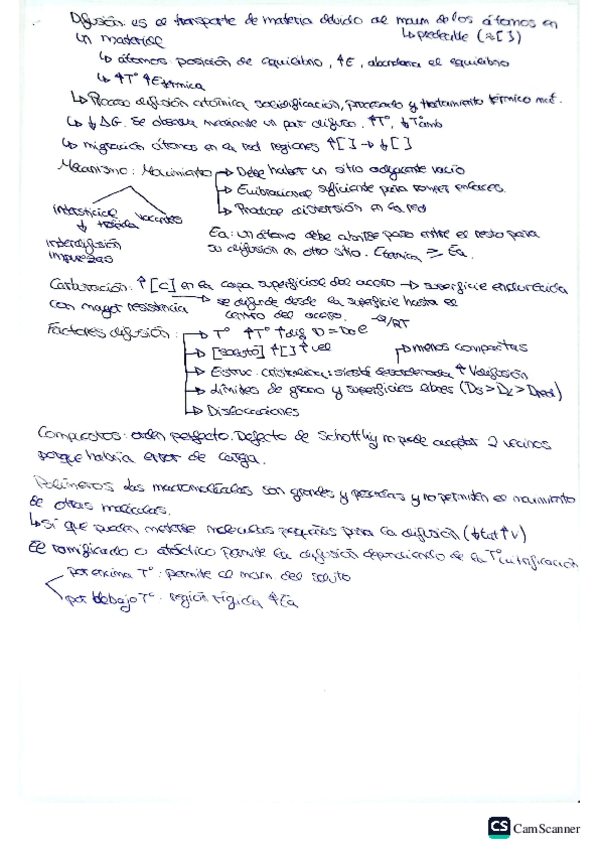 Difusión: es el transporte de materia debido al movm de los átomos en
un material ↳ predecible (≈[ ])
↳ átomos posición de equilibrio, ↑E, abandona el equilibrio
↳ ↑T° ↑E térmica
↳ Proceso difusión atómica solidificación, procesado y tratamiento térmico mat.
↳ ↓ΔG. Se observa mediante un par difusor. ↑T°,
↳ migración átomos en la red regiones ↑[ ] → ↓[ ]
Mecanismo: Movimiento → Debe haber un sitio adyacente vacío
→ suficiente para romper enlaces.
→ Produce distorsión en la red
intersticial vacantes
↓
interdifusión
impurezas
Ea: un átomo debe abrirse paso entre el resto para
su difusión en otro sitio. Etérmica ≥ Ea.
Carburación: ↑[C] en la capa superficial del acero → superficie endurecida
con mayor resistencia → se difunde desde la superficie hasta el
centro del acero.
Factores difusión: → T° ↑T° ↑dif D = Do e -Q/RT
→ [soluto] ↑[ ] ↑vel
→ menos compactas
→ Estruc. cristalina: desordenada ↑ Vdifusión
→ Límites de grano y superficies libres (Ds > DL > Dred)
→ Dislocaciones
Compuestos: orden perfecto. Defecto de Schottky no puede aceptar 2 vecinos
porque habría error de carga.
Polímeros Las macromoléculas son grandes y pesadas y no permiten el movimiento
de otras moléculas.
↳ Sí que pueden meterse moléculas pequeñas para la difusión
El ramificado o atáctico permite la difusión dependiendo de la T° vitrificación
por encima T°: permite el movm. del soluto
por debajo T°: región rígida
CS CamScanner